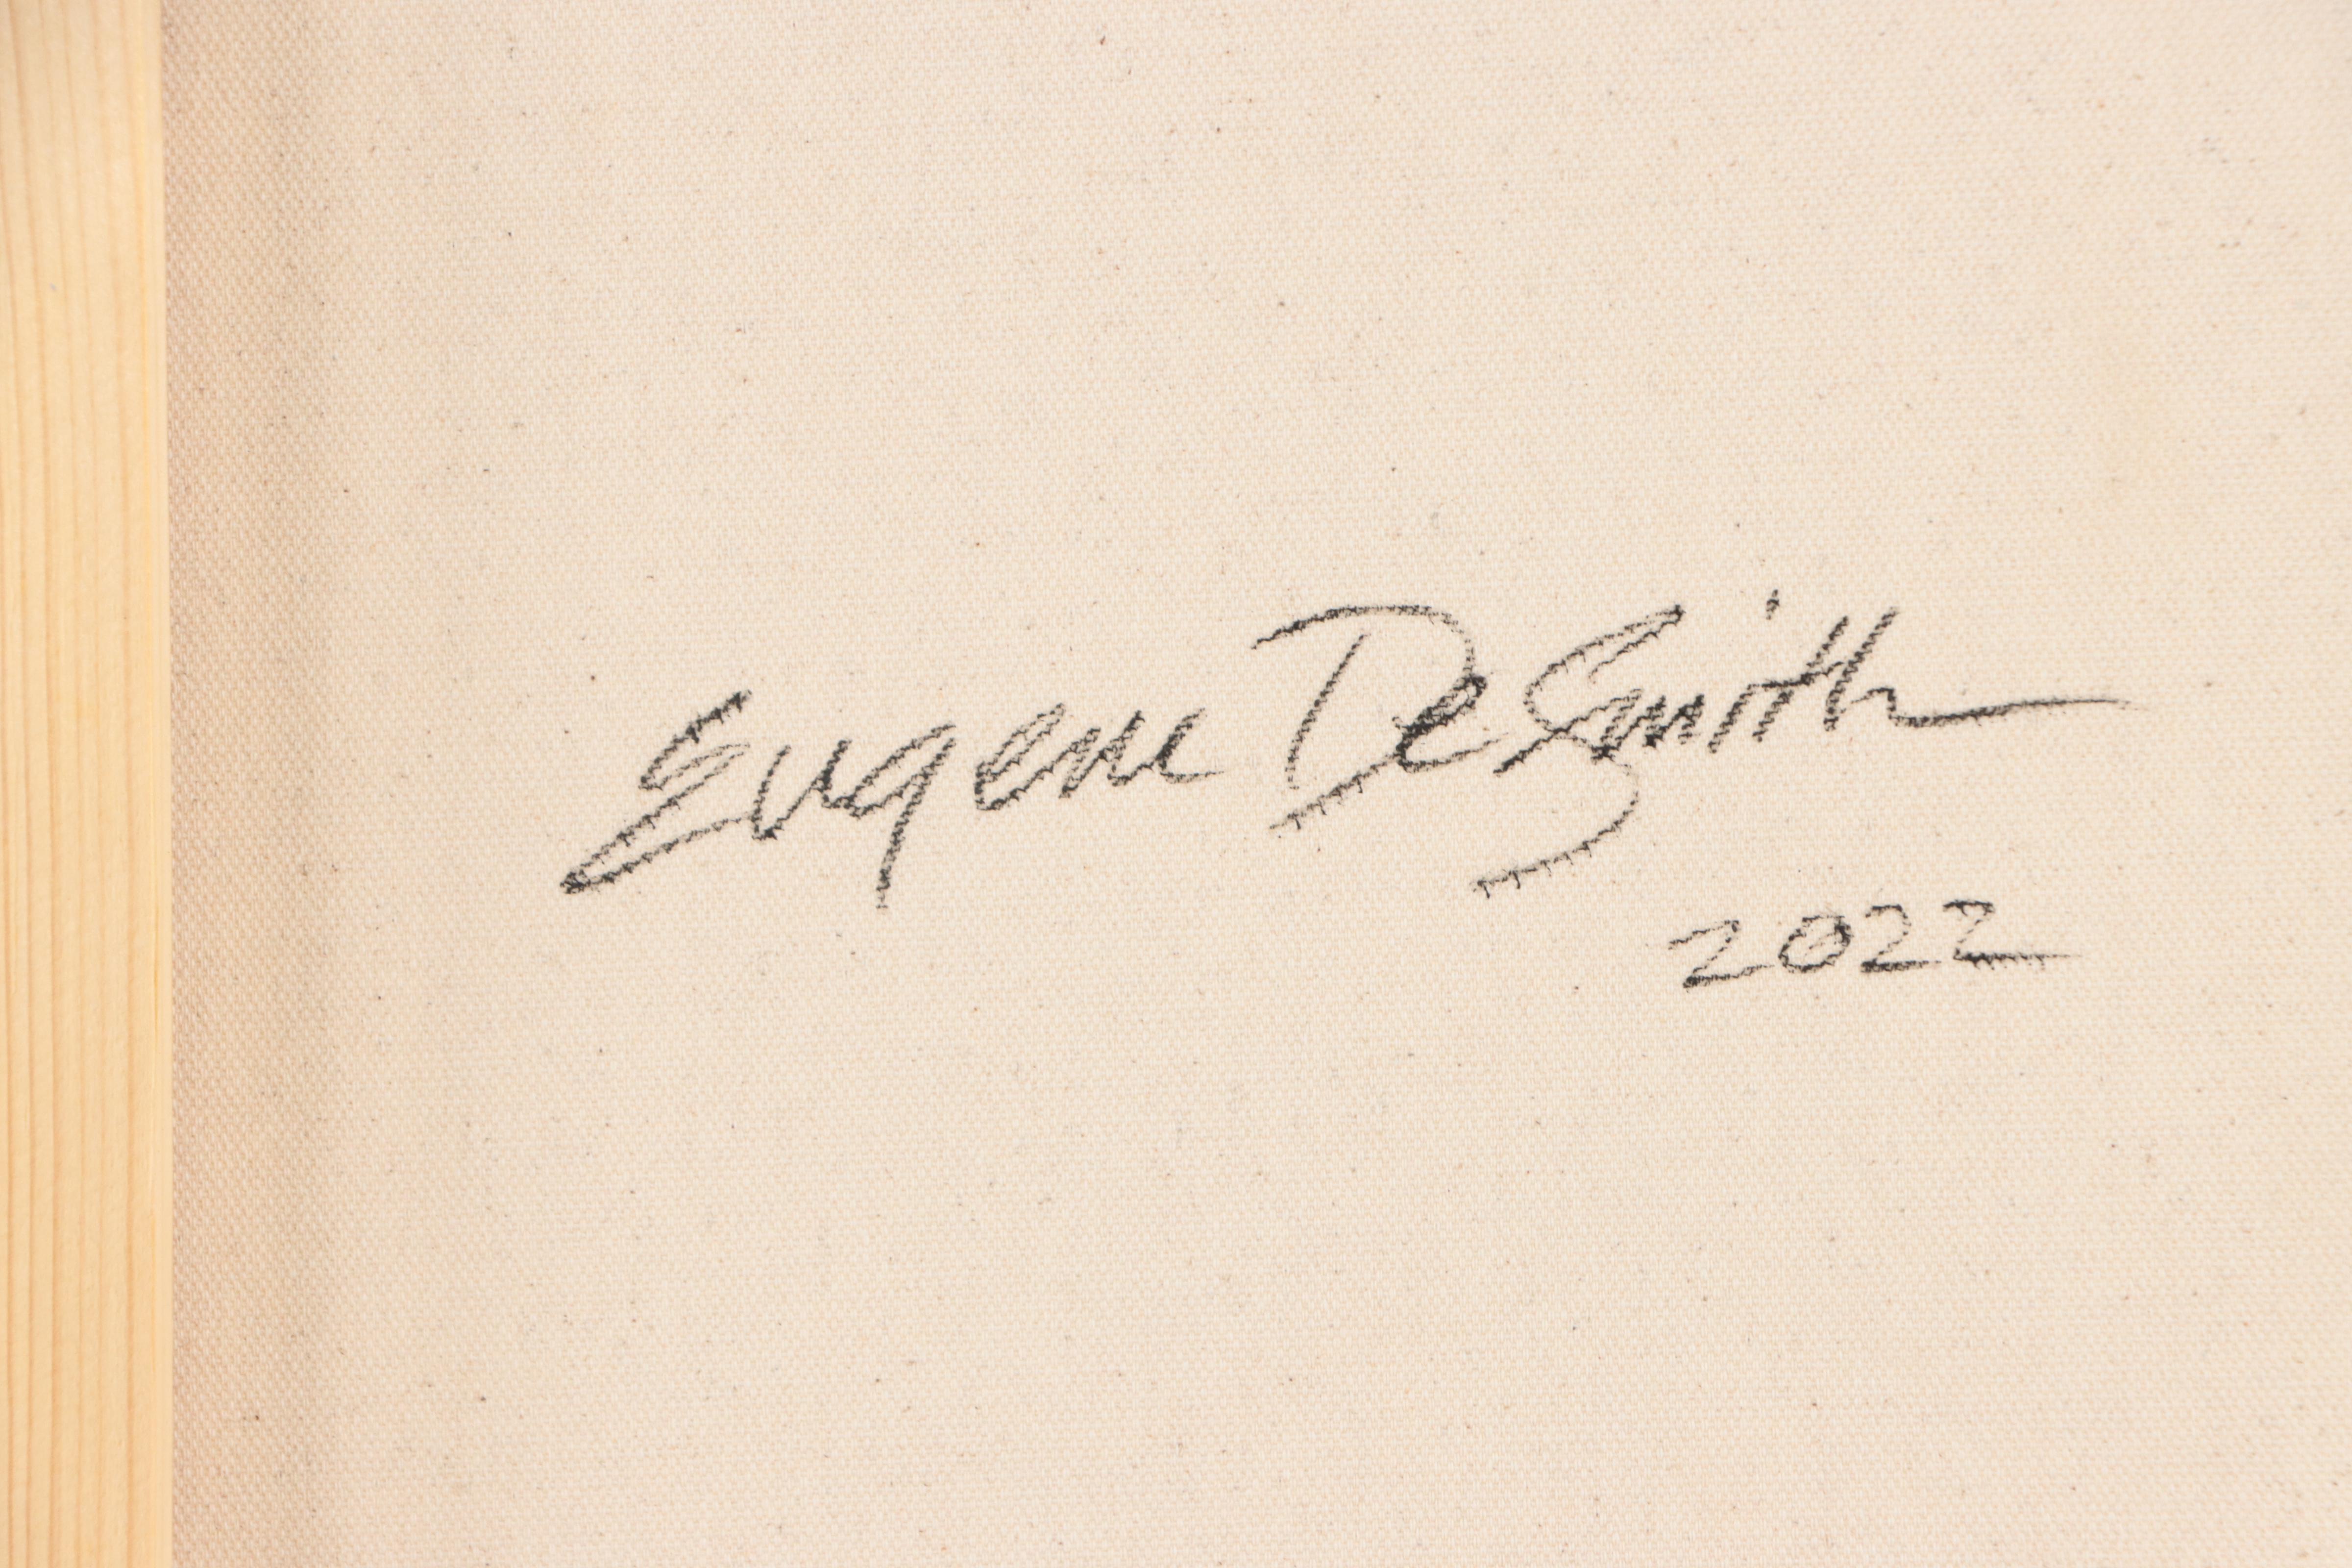 Eugene DeSmith
2022